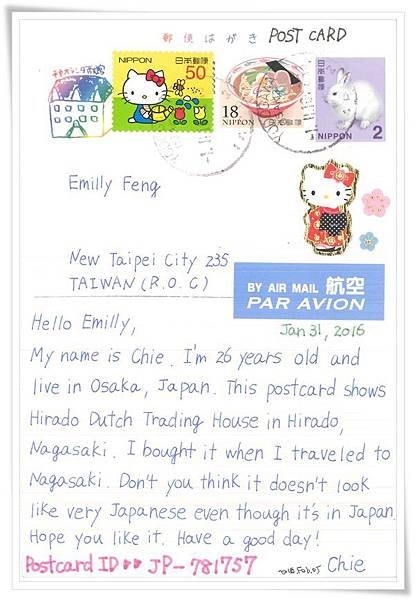 郵便はがき POST CARD
平戸オランダ商館
NIPPON 日本郵便
50
18
NIPPON 日本郵便
日本郵便
NIPPON 2
Emilly Feng
New Taipei City 235
TAIWAN (R.O.C)
BY AIR MAIL 航空
PAR AVION
Jan 31, 2016
Hello Emilly,
My name is Chie. I'm 26 years old and
live in Osaka, Japan. This postcard shows
Hirado Dutch Trading House in Hirado,
Nagasaki. I bought it when I traveled to
Nagasaki. Don't you think it doesn't look
like very Japanese even though it's in Japan.
Hope you like it. Have a good day!
Chie
Postcard ID JP-781757